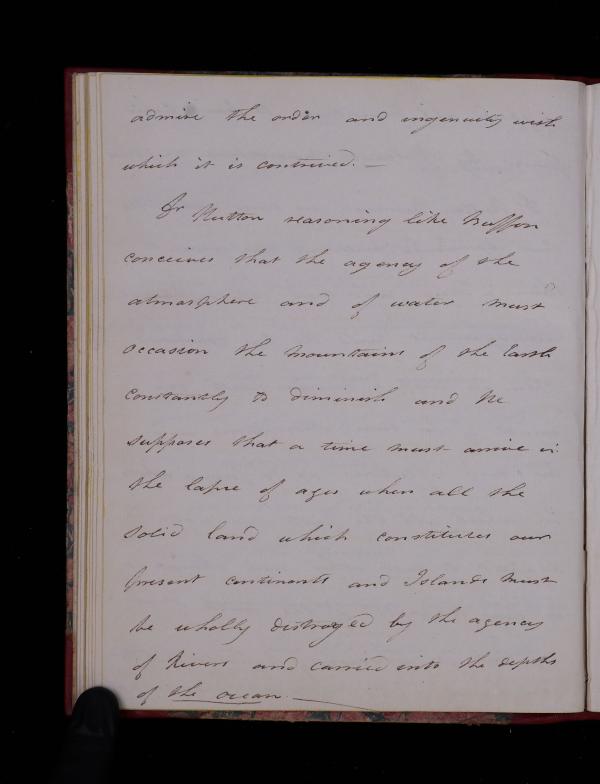 admire the order and ingenuity with
which it is contrived. —
Dr Hutton reasoning like Buffon
conceives that the agency of the
atmosphere and of water must
occasion the mountains of the Earth
constantly to diminish and he
supposes that a time must arrive in
the lapse of ages when all the
solid land which constitutes our
present continents and Islands must
be wholly destroyed by the agency
of Rivers and carried into the depths
of the ocean. —